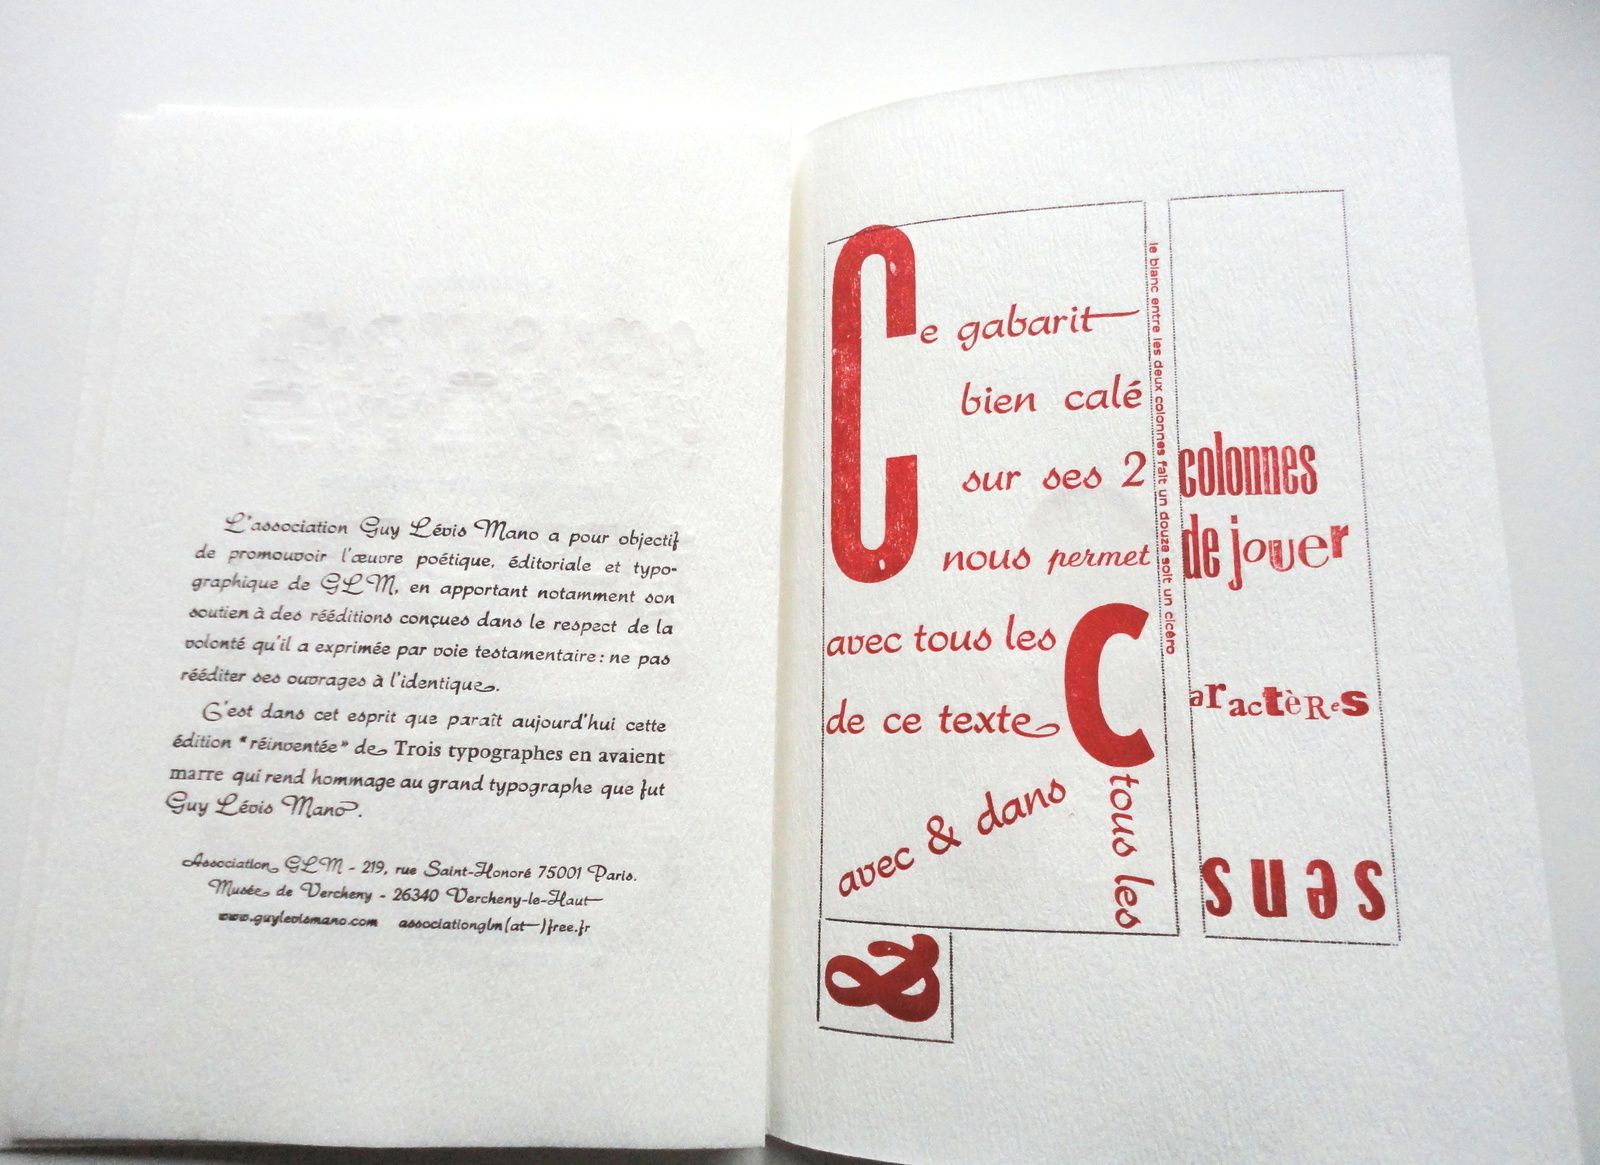 L'association Guy Lévis Mano a pour objectif
de promouvoir l'œuvre poétique, éditoriale et typo-
graphique de GLM, en apportant notamment son
soutien à des rééditions conçues dans le respect de la
volonté qu'il a exprimée par voie testamentaire : ne pas
rééditer ses ouvrages à l'identique.
C'est dans cet esprit que paraît aujourd'hui cette
édition "réinventée" de Trois typographes en avaient
marre qui rend hommage au grand typographe que fut
Guy Lévis Mano.
Association GLM - 219, rue Saint-Honoré 75001 Paris.
Musée de Vercheny - 26340 Vercheny-le-Haut
www.guylevismano.com associationglm(at)free.fr
Ce gabarit
bien calé
sur ses 2 colonnes
nous permet de jouer
avec tous les
Caractères
de ce texte
avec & dans
tous les
sens
&
le blanc entre les deux colonnes fait un douze soit un cicéro